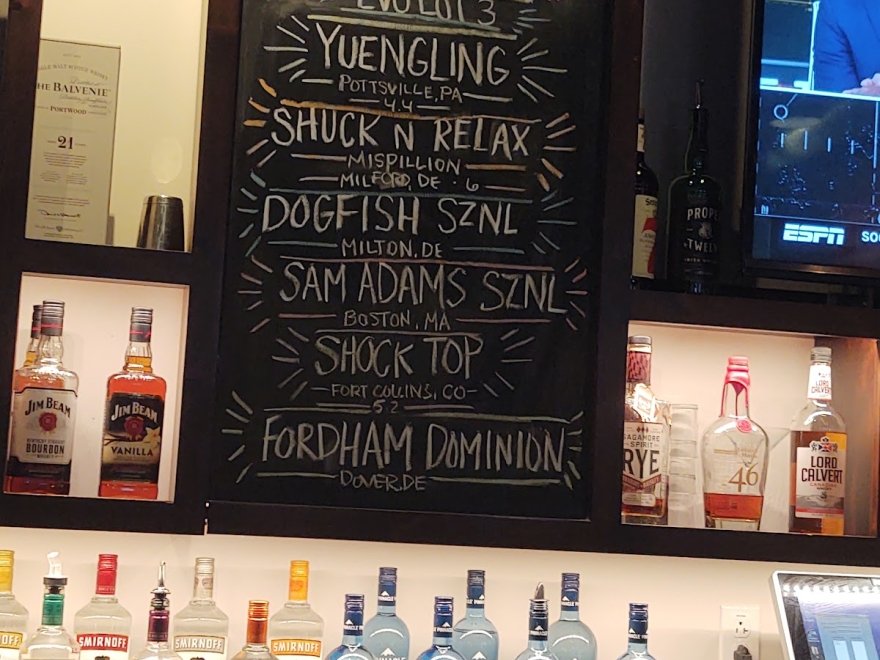 EVO LOT 3
YUENGLING
POTTSVILLE, PA
4.4
SHUCK N RELAX
MISPILLION
MILFORD, DE · 6
DOGFISH SZNL
MILTON, DE
SAM ADAMS SZNL
BOSTON, MA
SHOCK TOP
FORT COLLINS, CO
5.2
FORDHAM DOMINION
DOVER, DE
HE BALVENIE
PORTWOOD
21
JIM BEAM
BOURBON
JIM BEAM
VANILLA
PROPE
TWELV
ESPN
SO
SAGAMORE
SPIRIT
RYE
46
LORD
CALVERT
LORD
CALVERT
CANADIAN
SMIRNOFF
SMIRNOFF
SMIRNOFF
PINNACLE
PINNACLE